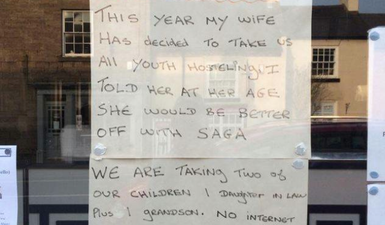 THIS YEAR MY WIFE
HAS decided TO TAKE US
All YOUTH HOSTELING, I
TOLD HER AT HER AGE
SHE WOULD BE BETTER
OFF WITH SAGA
WE ARE TAKING TWO OF
OUR CHILDREN 1 DAUGHTER IN LAW
Plus 1 GRANDSON. NO INTERNET